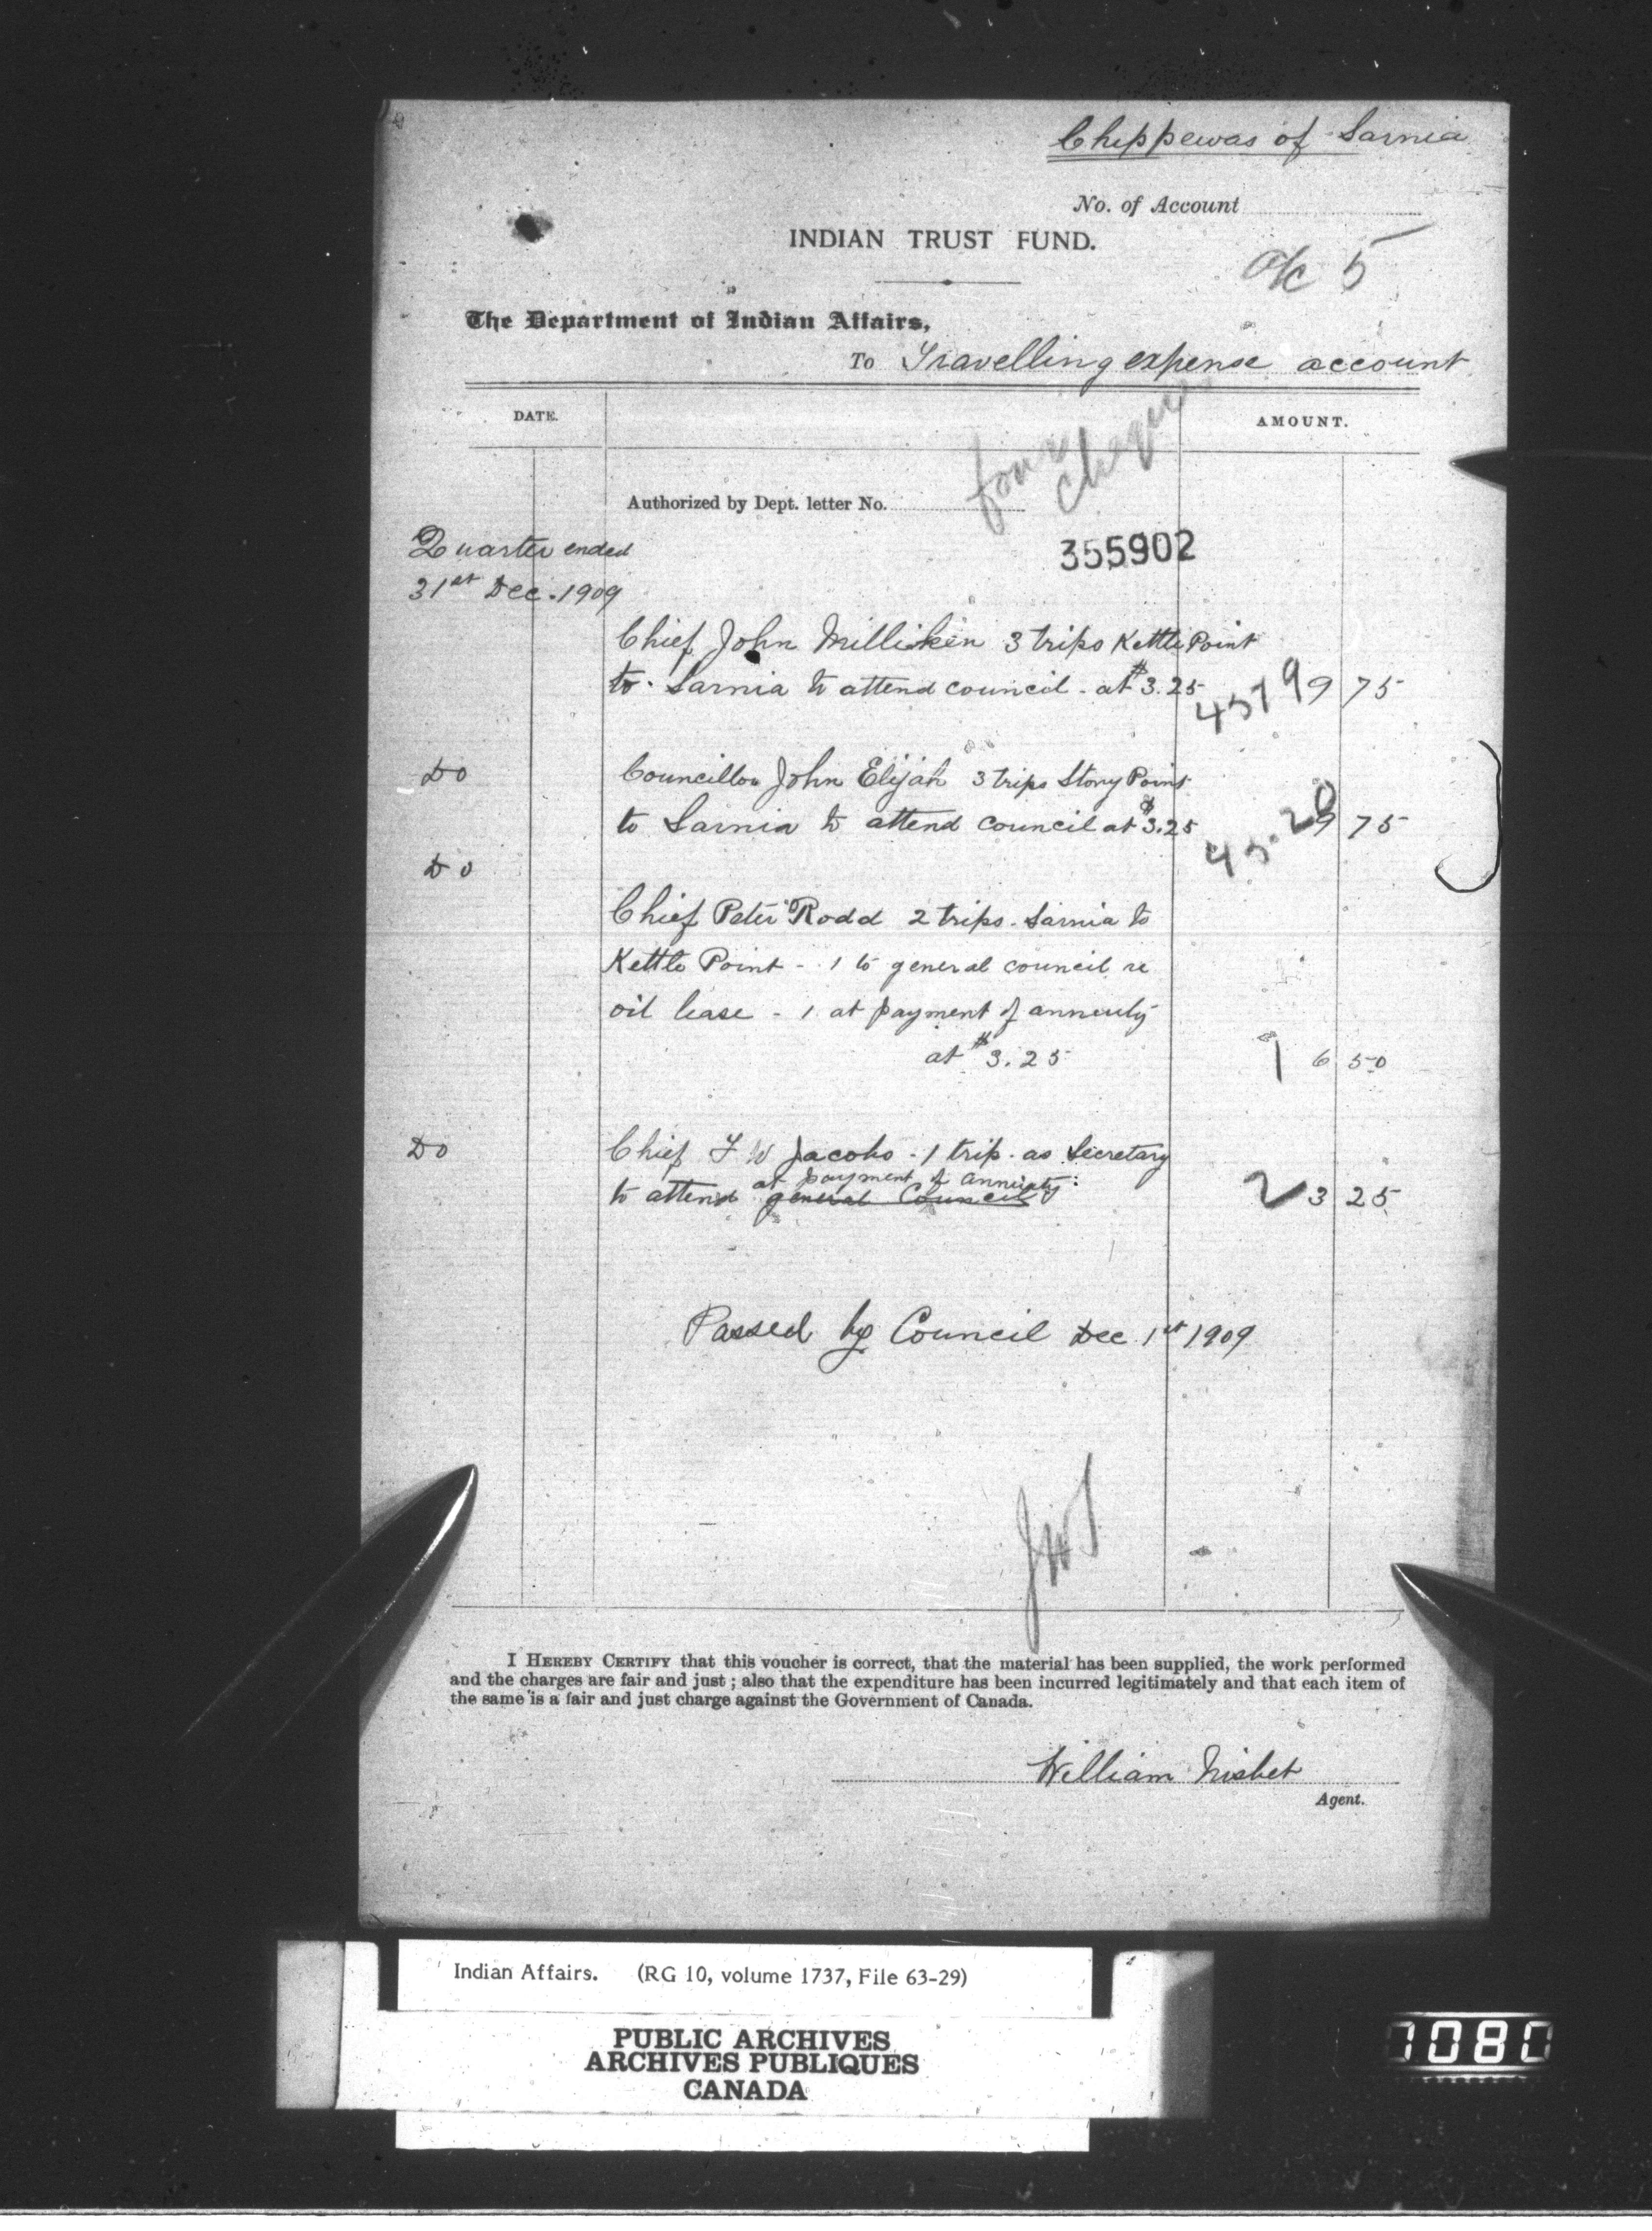 Chippewas of Sarnia
No. of Account
INDIAN TRUST FUND.
a/c 5
The Department of Indian Affairs,
To Travelling expense account
DATE.
AMOUNT.
four cheques
Authorized by Dept. letter No.
355902
Quarter ended
31st Dec. 1909
Chief John Milliken 3 trips Kettle Point
to Sarnia to attend council - at $3.25 4519 9 75
Do Councillor John Elijah 3 trips Stony Point
to Sarnia to attend council at $3.25 45.20 9 75
Do
Chief Peter Rodd 2 trips - Sarnia to
Kettle Point - 1 to general council re
oil lease - 1 at payment of annuity
at $3.25 1 6 50
Do Chief F W Jacobs - 1 trip - as Secretary
at payment of annuity
to attend general Council 2 3 25
Passed by Council Dec 1st 1909
I HEREBY CERTIFY that this voucher is correct, that the material has been supplied, the work performed
and the charges are fair and just ; also that the expenditure has been incurred legitimately and that each item of
the same is a fair and just charge against the Government of Canada.
William Nisbet
Agent.
Indian Affairs. (RG 10, volume 1737, File 63-29)
PUBLIC ARCHIVES
ARCHIVES PUBLIQUES
CANADA
1080